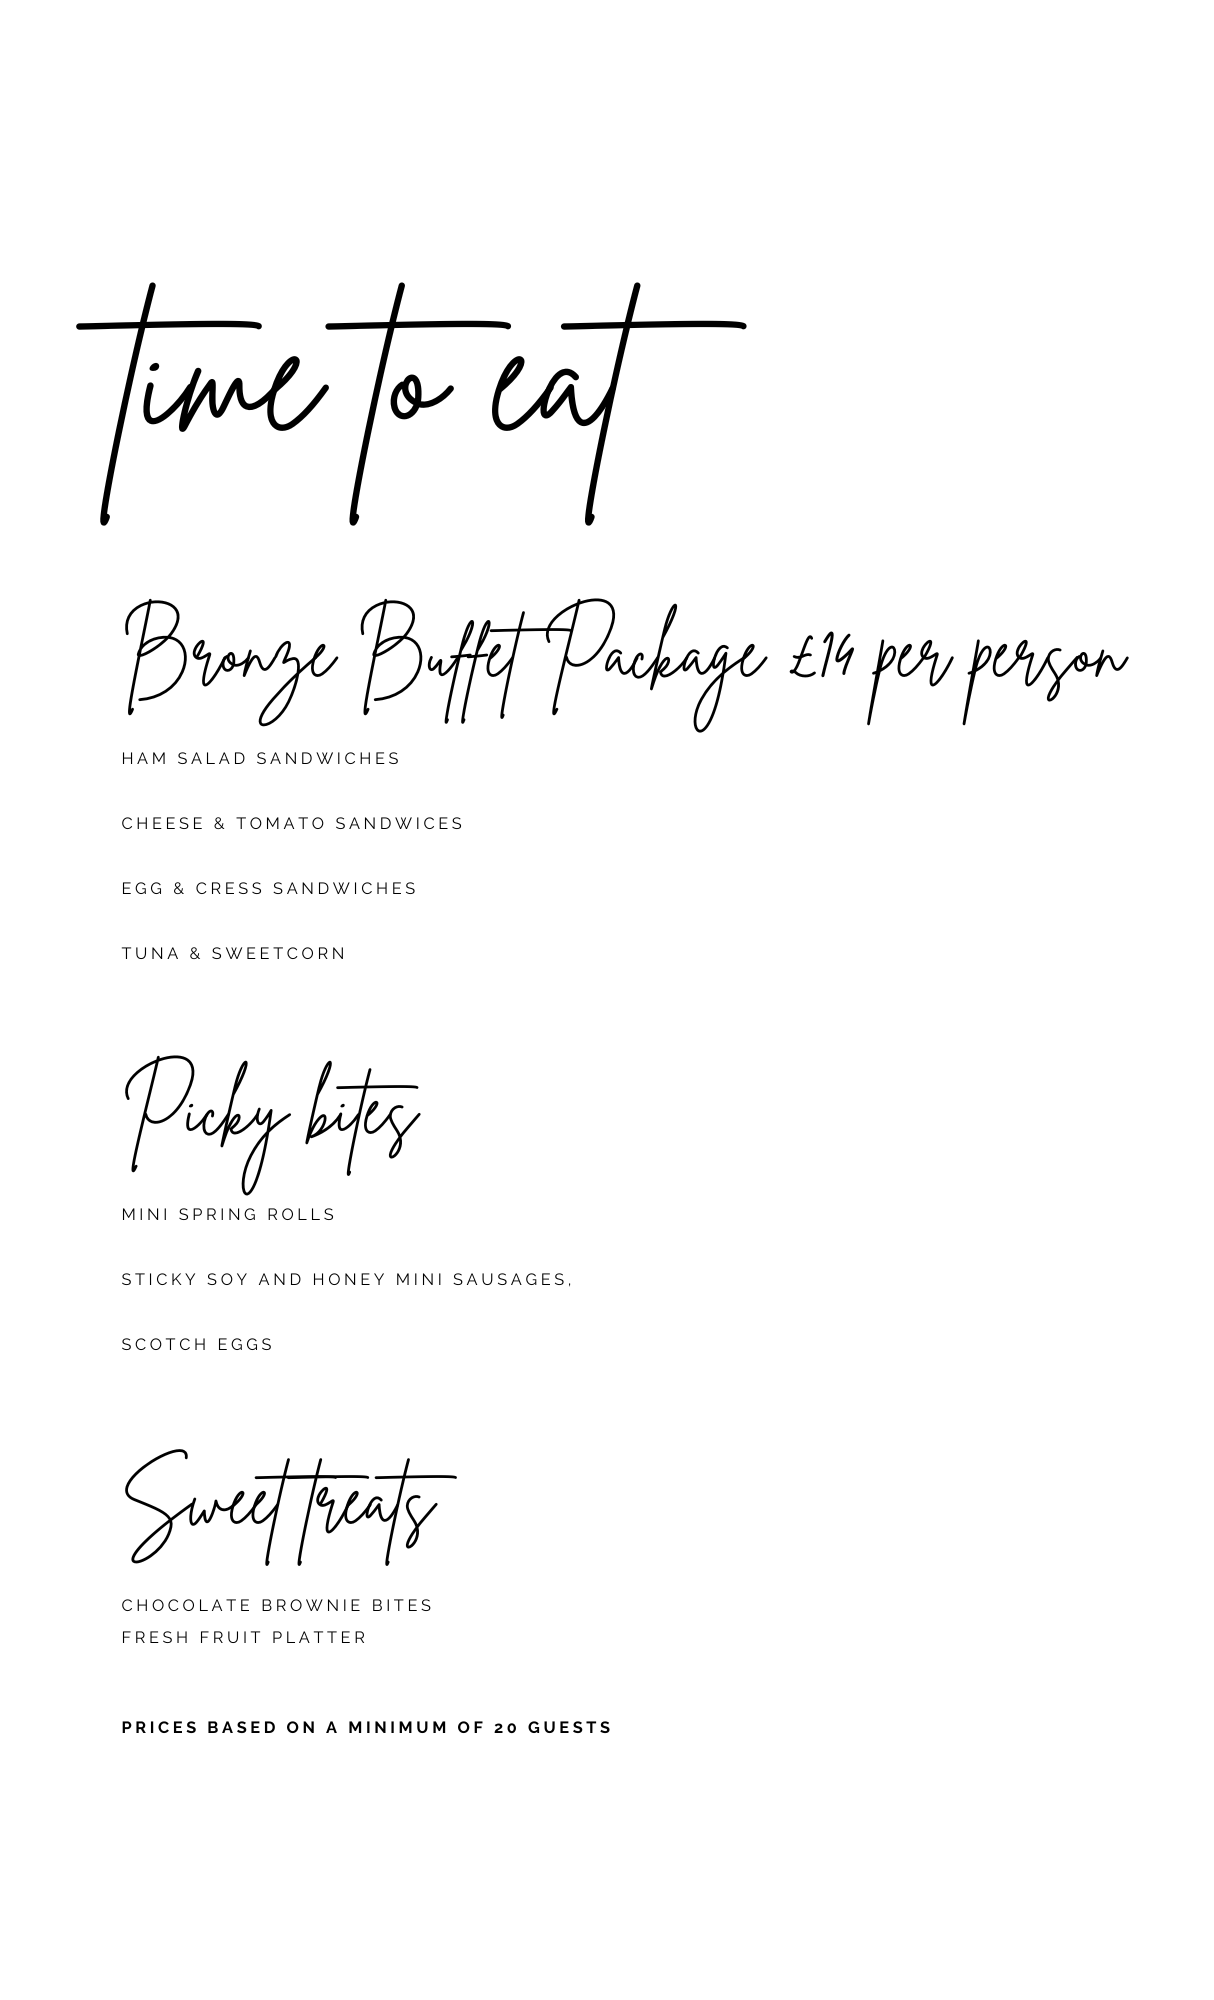 time to eat
Bronze Buffet Package £14 per person
HAM SALAD SANDWICHES
CHEESE & TOMATO SANDWICES
EGG & CRESS SANDWICHES
TUNA & SWEETCORN
Picky bites
MINI SPRING ROLLS
STICKY SOY AND HONEY MINI SAUSAGES,
SCOTCH EGGS
Sweet treats
CHOCOLATE BROWNIE BITES
FRESH FRUIT PLATTER
PRICES BASED ON A MINIMUM OF 20 GUESTS